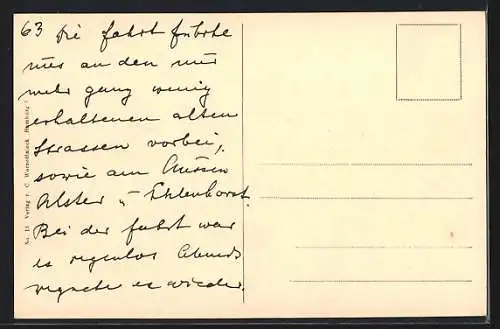 63 Die Fahrt führte
uns an den nur
mehr ganz wenig
erhaltenen alten
Strassen vorbei,
sowie am Aussen
Alster u Uhlenhorst.
Bei der Fahrt war
es regenlos Abends
regnete es wieder.
Verlag v. C. Worzedialeck, Hamburg